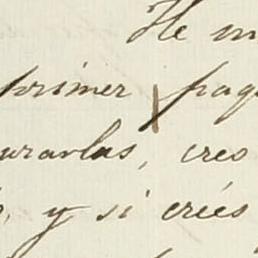 He m
primer pag
urarlas, creo
, y si creés